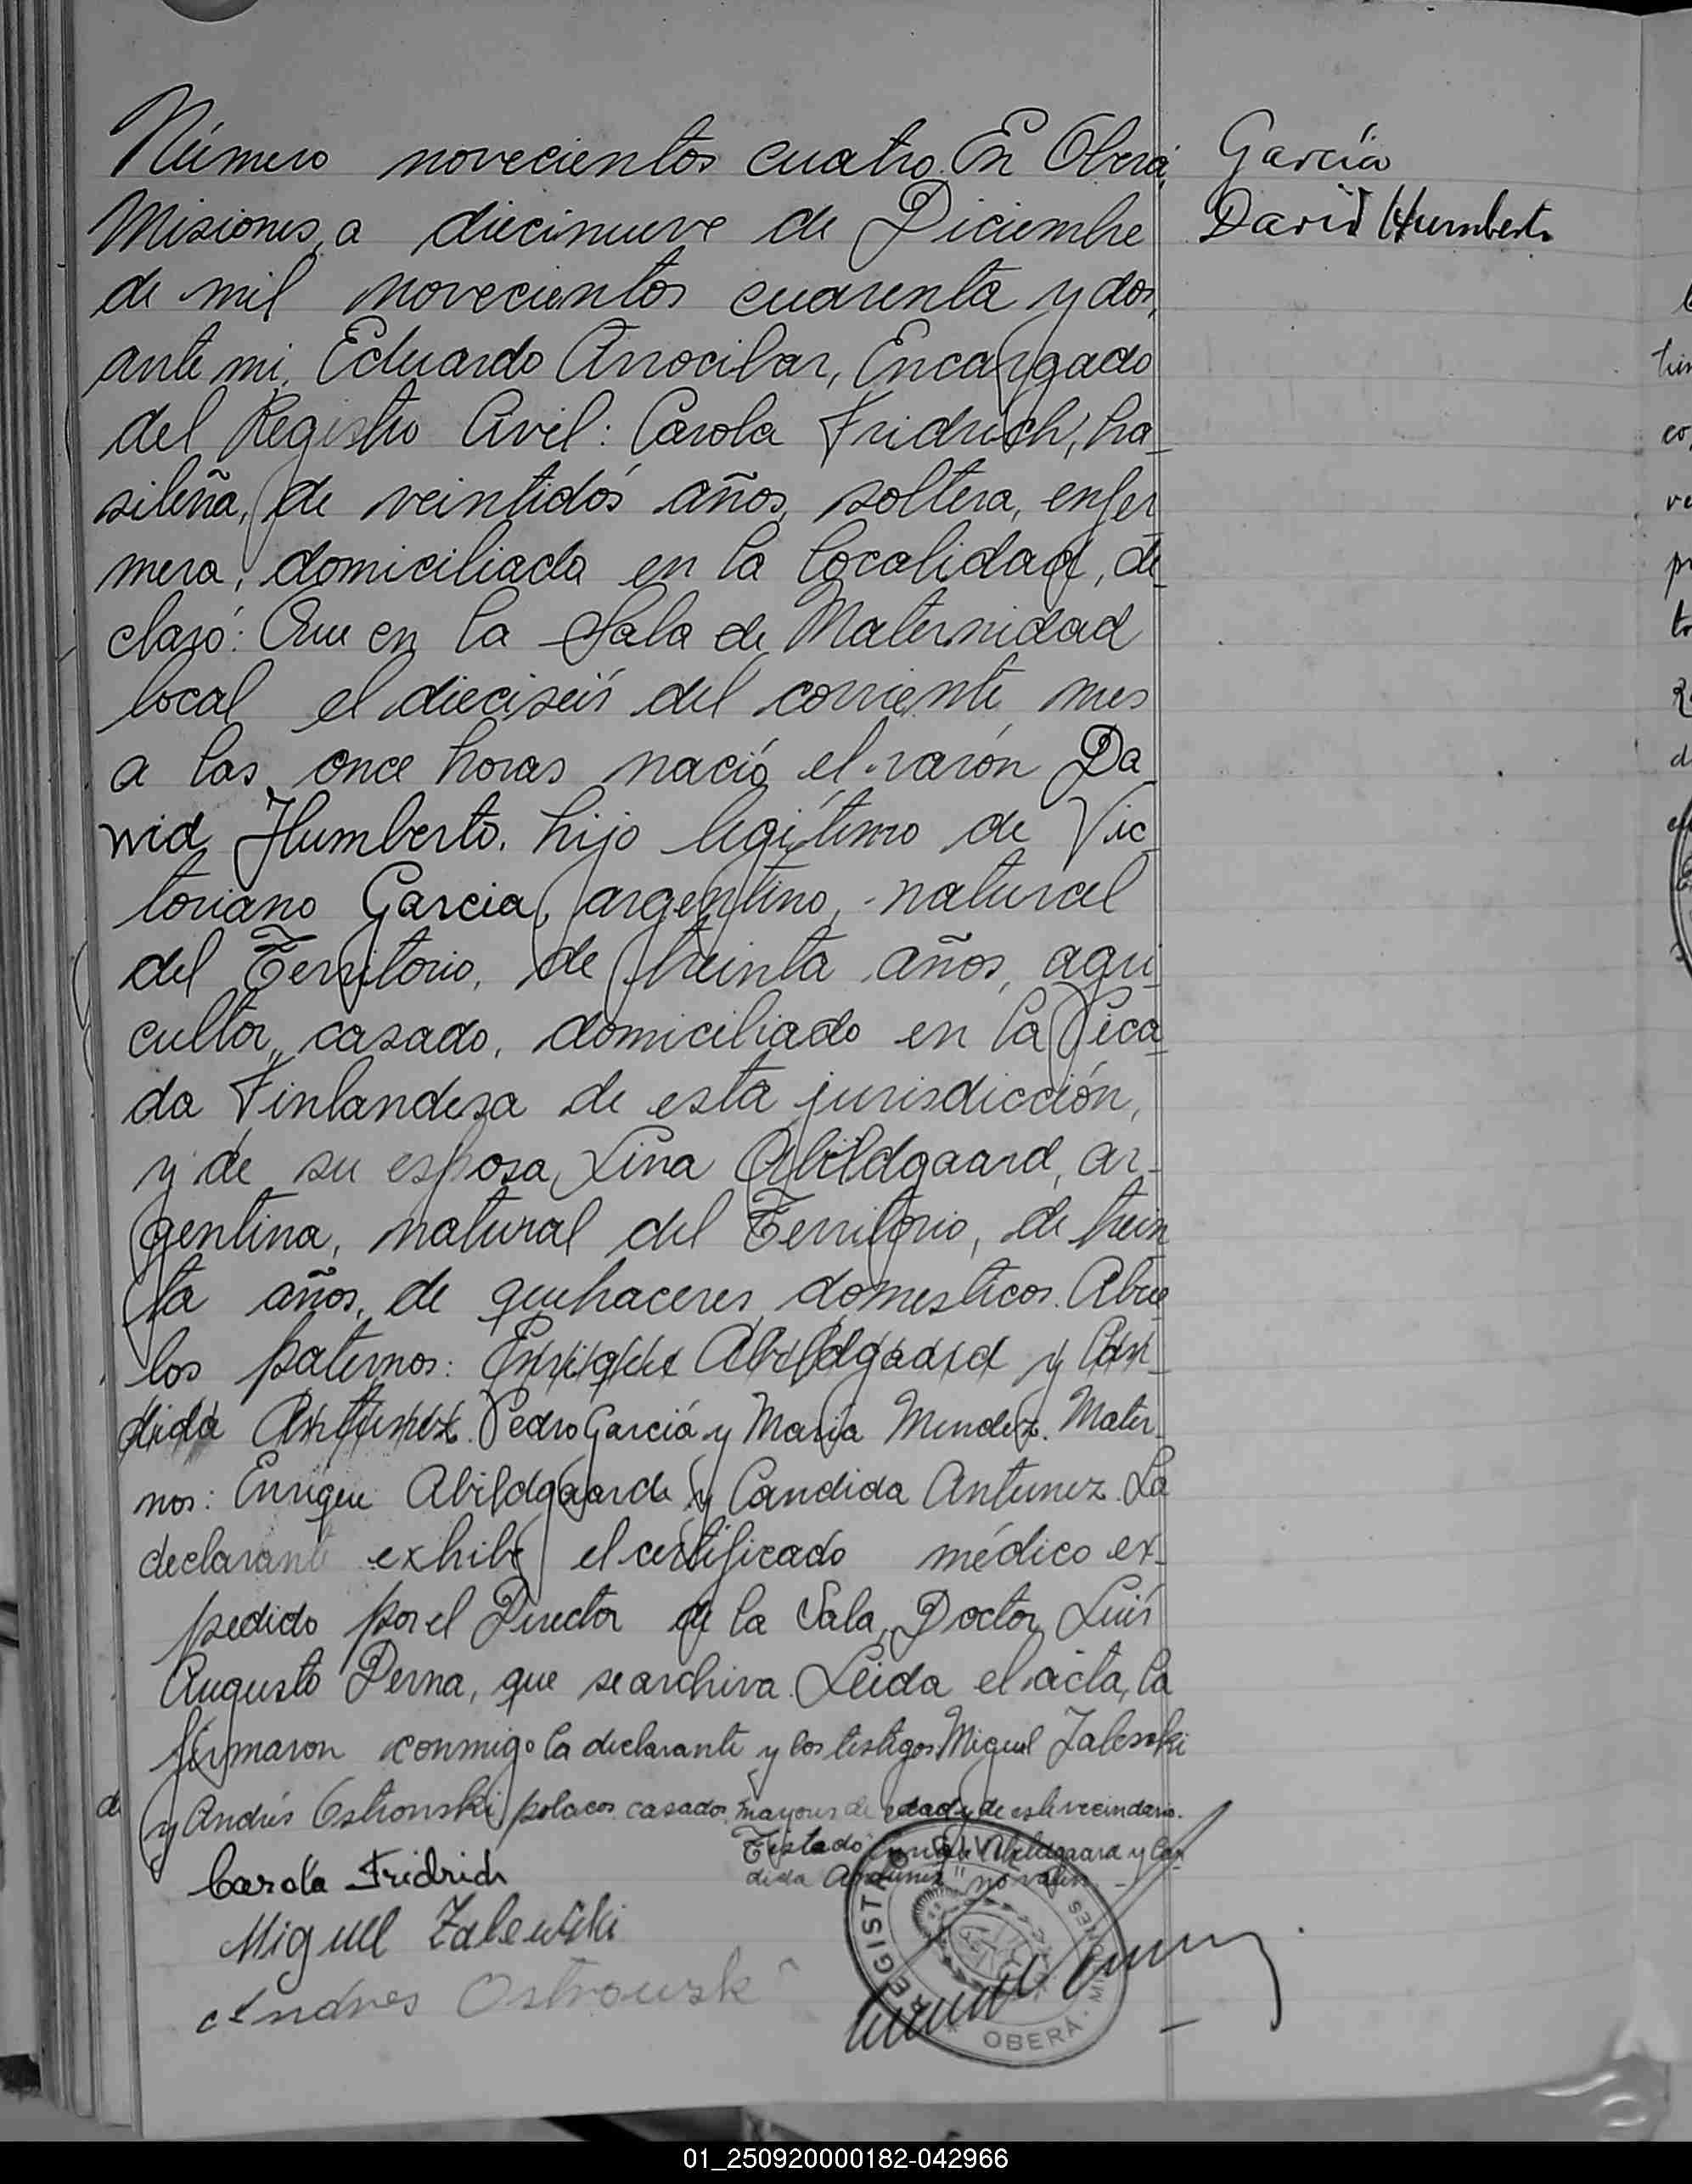 Número novecientos cuatro. En Oberá,
Misiones, a diecinueve de Diciembre
de mil novecientos cuarenta y dos,
ante mi, Eduardo Arrocibar, Encargado
del Registro Civil: Carola Fridrich, bra-
sileña, de veintidós años, soltera, enfer-
mera, domiciliada en la localidad, de-
claró: Que en la Sala de Maternidad
local el dieciseis del corriente mes
a las once horas nació el varón Da-
vid Humberto, hijo legítimo de Vic-
toriano Garcia, argentino, natural
del Territorio, de treinta años, agri-
cultor, casado, domiciliado en la Pica-
da Finlandesa de esta jurisdicción,
y de su esposa Lina Abildgaard, ar-
gentina, natural del Territorio, de trein-
ta años, de quehaceres domesticos. Abue-
los paternos: Enrique Abildgaard y Can-
dida Antunez. Pedro García y María Mendez. Mater-
nos: Enrique Abildgaard y Candida Antunez. La
declarante exhibe el certificado médico ex-
pedido por el Director de la Sala, Doctor Luis
Augusto Derna, que se archiva. Leida el acta, la
firmaron conmigo la declarante y los testigos Miguel Zalewski
y Andrés Ostrowski, polacos, casados, mayores de edad y de este vecindario.
Testado "Enrique Abildgaard y Can-
dida Antunez" no valen.
Carola Fridrich
Miguel Zalewski
Andres Ostrowski
García
David Humberto
REGISTRO CIVIL
OBERÁ - MISIONES
01_250920000182-042966